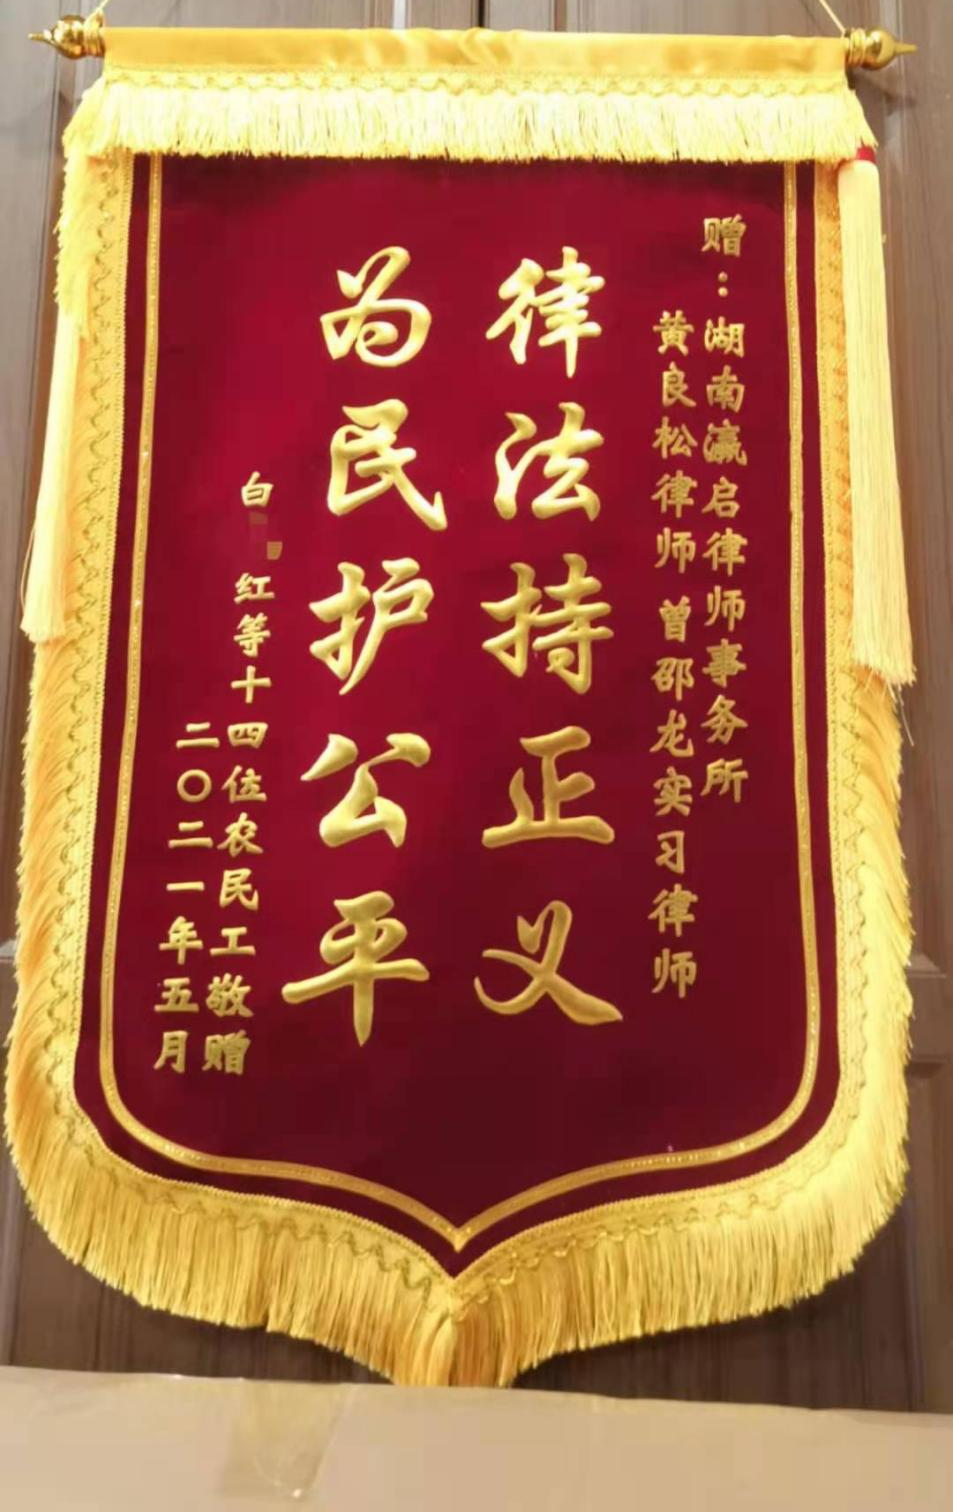 赠：湖南瀛启律师事务所
黄良松律师 曾邵龙实习律师
律法持正义
为民护公平
白 红等十四位农民工敬赠
二〇二一年五月